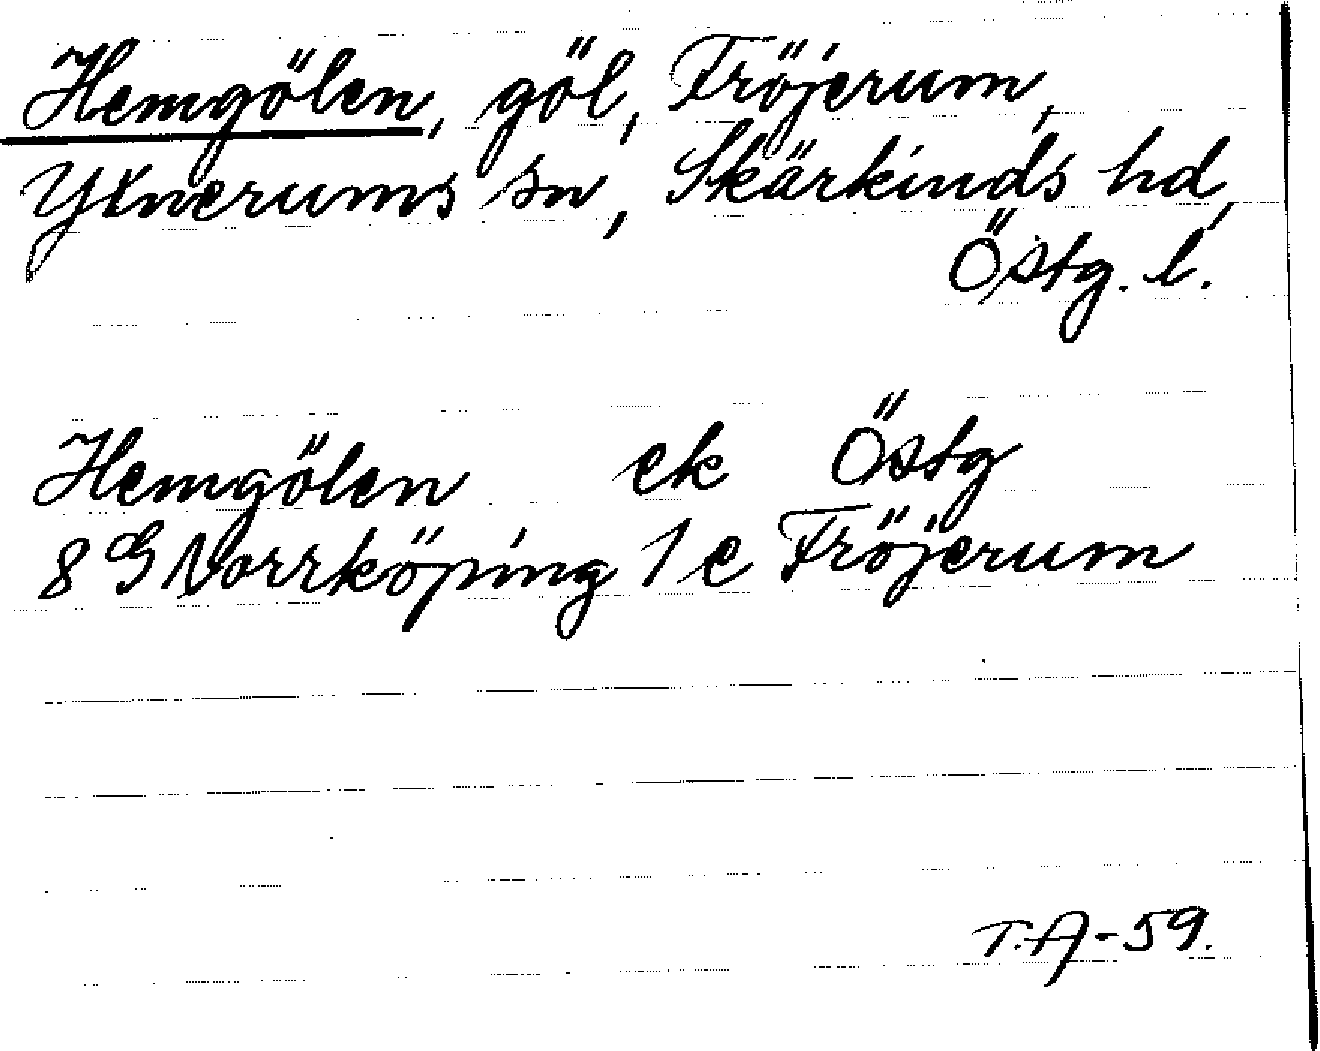 Hemgölen, göl, Fröjerum,
Yxnerums sn, Skärkinds hd,
Östg. l.
Hemgölen ek Östg
8 G Norrköping 1 e Fröjerum
T.A-59.